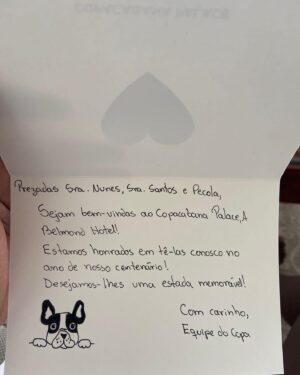 COPACABANA PALACE
Prezadas Sra. Nunes, Sra. Santos e Pecola,
Sejam bem-vindas ao Copacabana Palace, A
Belmond Hotel!
Estamos honrados em tê-las conosco no
ano de nosso centenário!
Desejamos-lhes uma estada memorável!
Com carinho,
Equipe do Copa